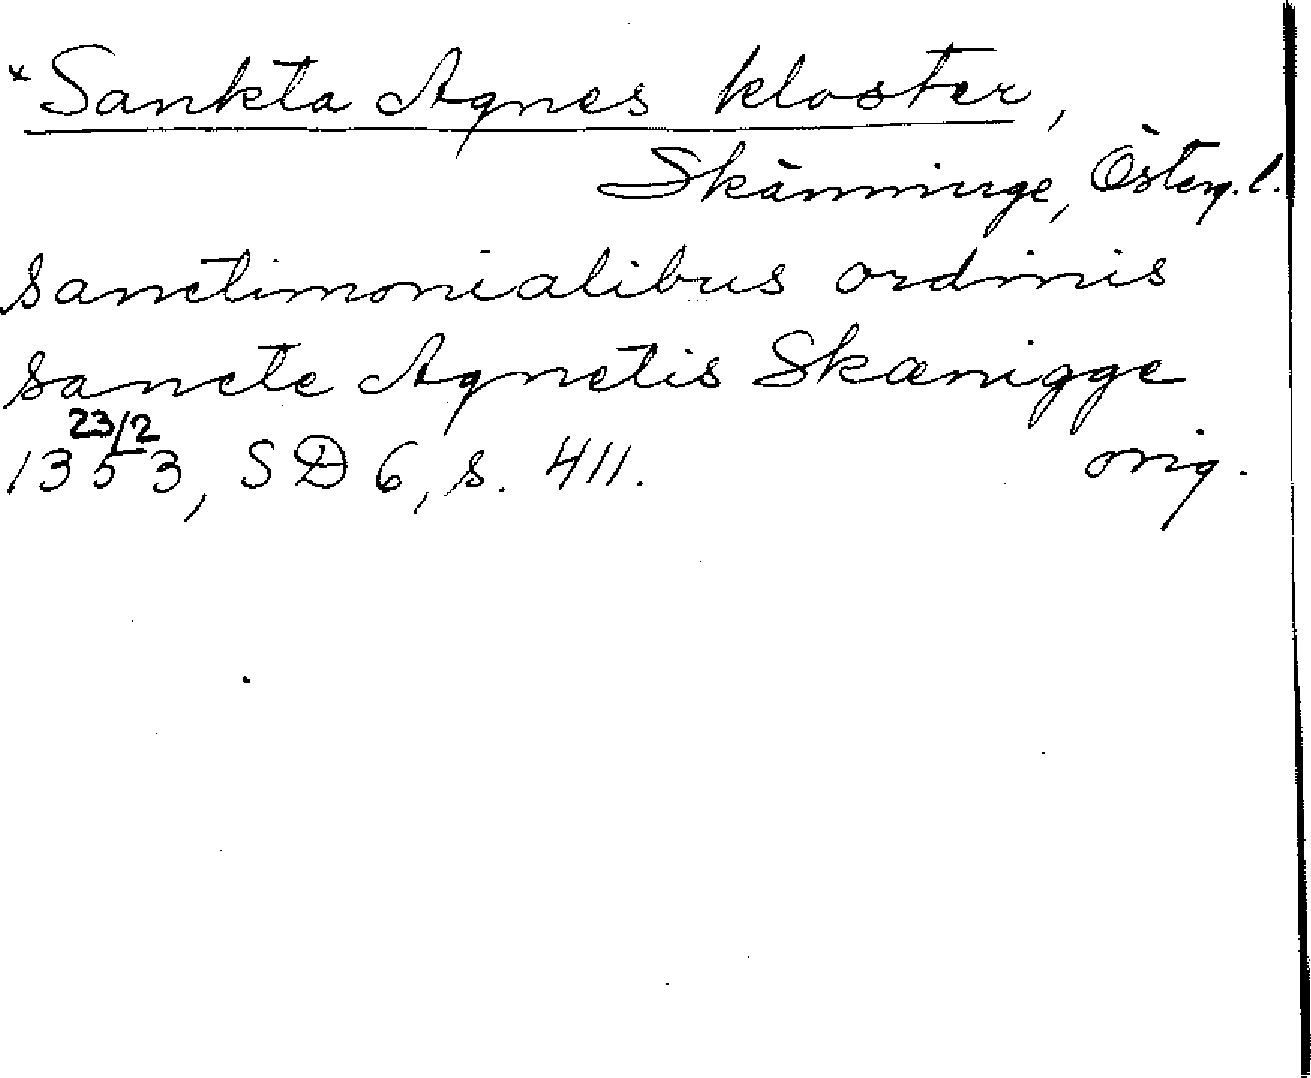 *Sankta Agnes kloster,
Skänninge, Österg. l.
sanctimonialibus ordinis
sancte Agnetis Skænigge
23/2
1353, SD 6, s. 411. orig.